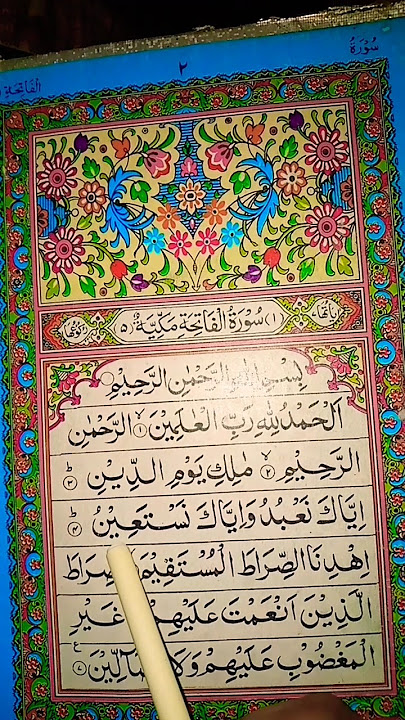 سُوْرَةُ
٢
الْفَاتِحَةِ
(١) سُوْرَةُ الْفَاتِحَةِ مَكِّيَّةٌ (٥)
بِسْمِ اللهِ الرَّحْمٰنِ الرَّحِيْمِ
اَلْحَمْدُ لِلّٰهِ رَبِّ الْعٰلَمِيْنَ ۙ﴿١﴾ الرَّحْمٰنِ
الرَّحِيْمِ ۙ﴿٢﴾ مٰلِكِ يَوْمِ الدِّيْنِ ؕ﴿٣﴾
اِيَّاكَ نَعْبُدُ وَاِيَّاكَ نَسْتَعِيْنُ ؕ﴿٤﴾
اِهْدِنَا الصِّرَاطَ الْمُسْتَقِيْمَ
الَّذِيْنَ اَنْعَمْتَ عَلَيْهِمْ غَيْرِ
الْمَغْضُوْبِ عَلَيْهِمْ وَلَا ﴿٧﴾